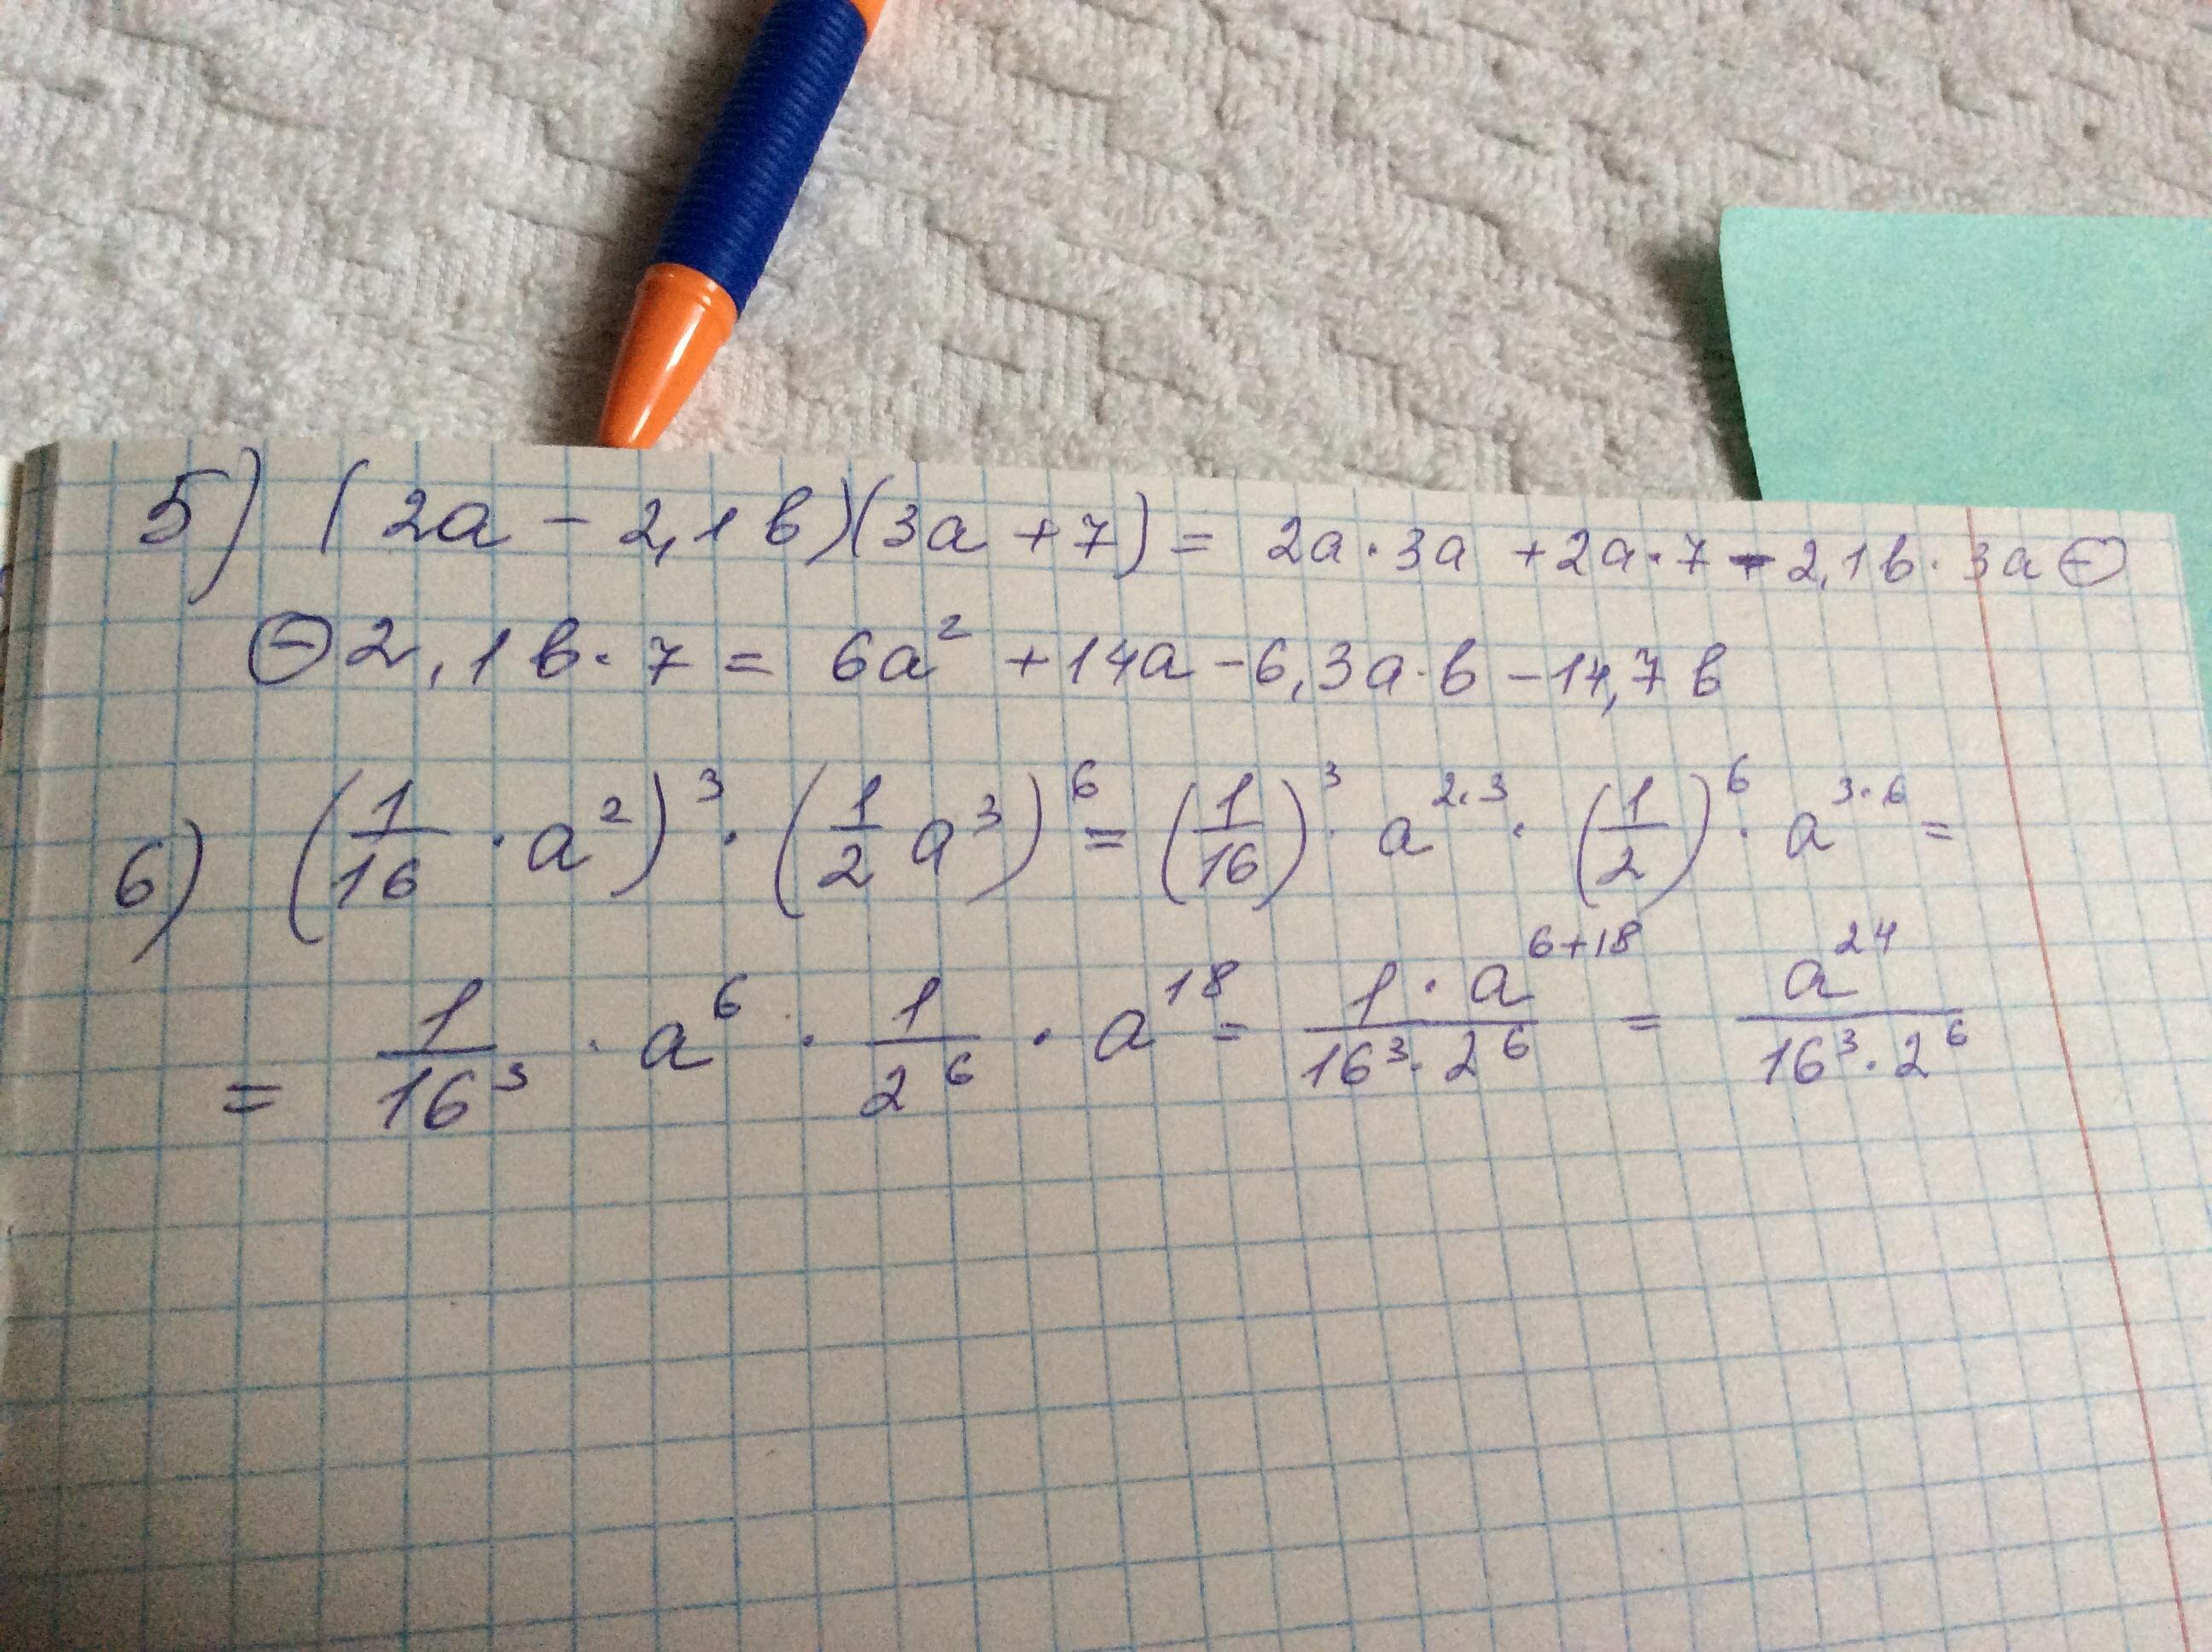 5) (2a - 2,1b)(3a + 7) = 2a · 3a + 2a · 7 - 2,1b · 3a ⊖
⊖ 2,1b · 7 = 6a² + 14a - 6,3a · b - 14,7b
6) (1/16 · a²)³ · (1/2 a³)⁶ = (1/16)³ · a^(2·3) · (1/2)⁶ · a^(3·6) =
= 1/16³ · a⁶ · 1/2⁶ · a¹⁸ = (1 · a^(6+18))/(16³ · 2⁶) = a²⁴/(16³ · 2⁶)